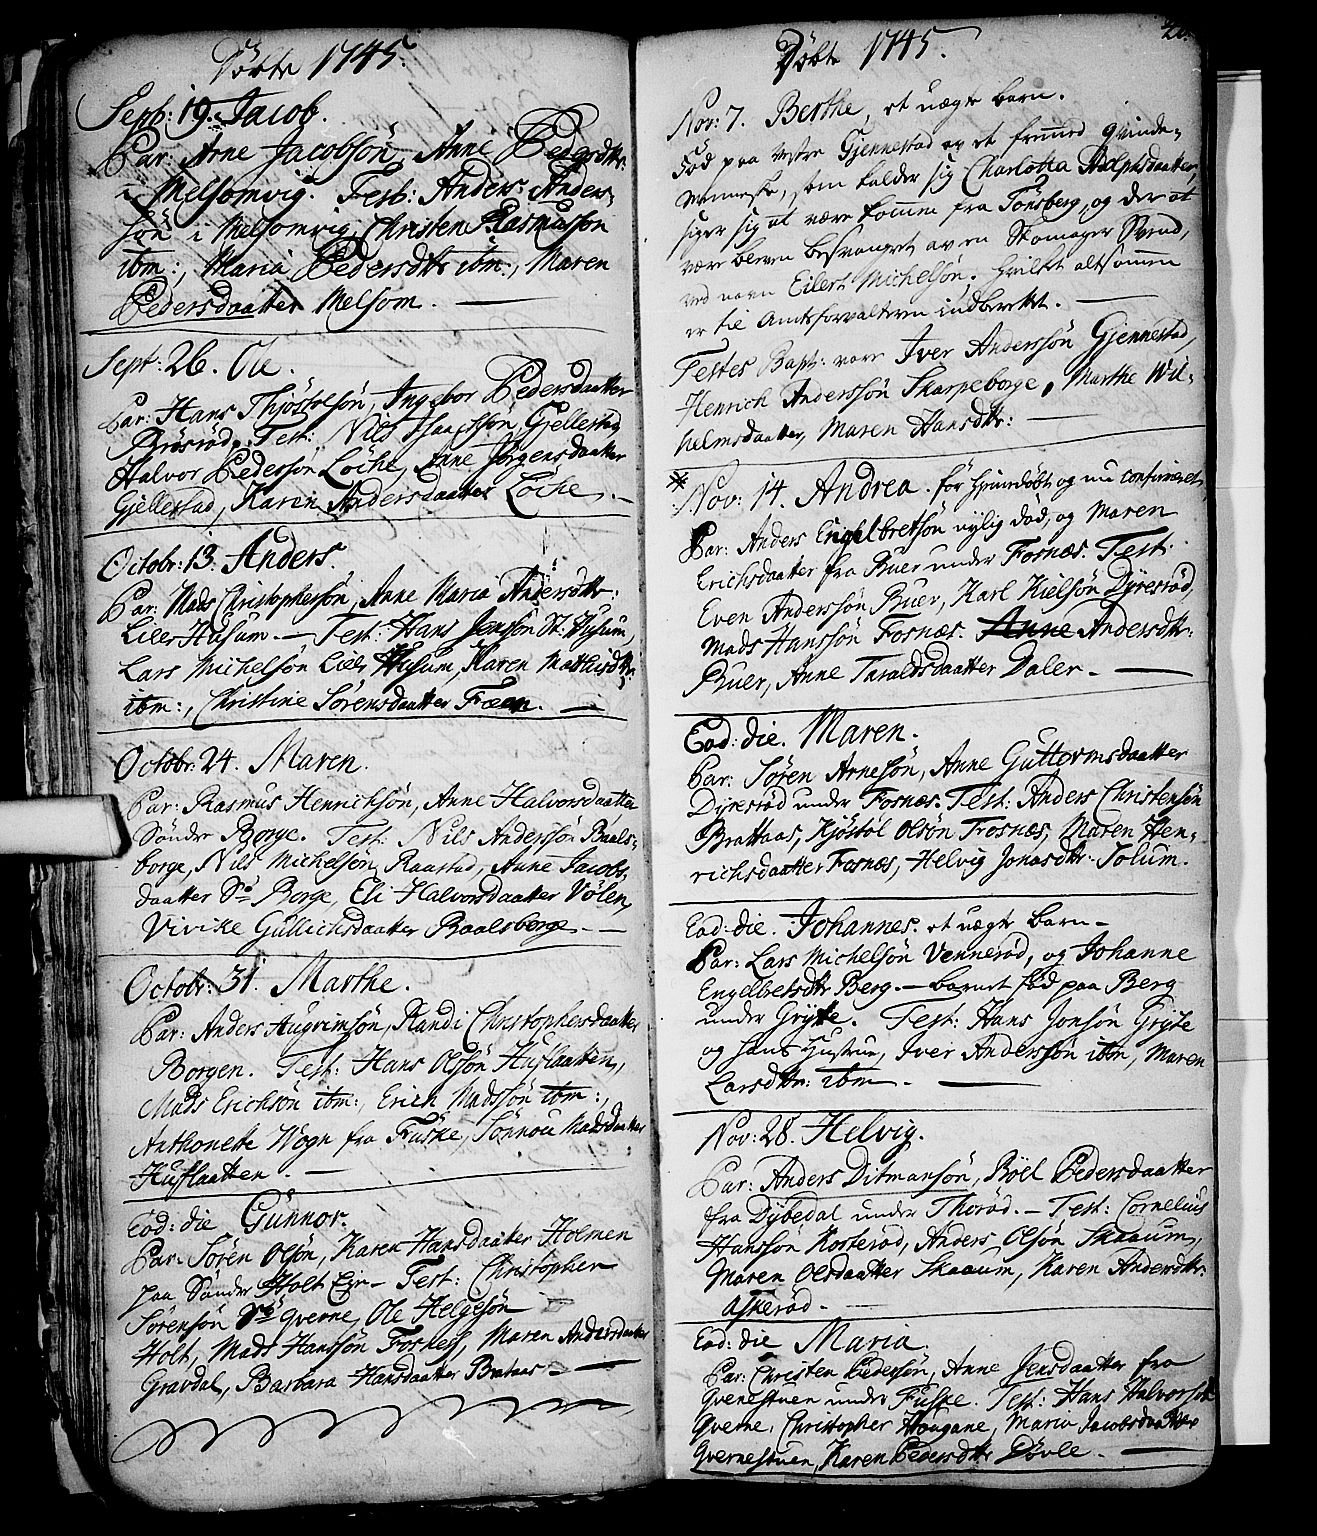 Döbte 1745.
Sept: 19. Jacob.
Par: Arne Jacobsön, Anne Pedersdttr:
i Melsomvig. Test: Anders Anders-
sön i Melsomvig, Christen Rasmusson
ibm:, Maria Pedersdttr ibm:, Maren
Pedersdaatter Melsom.
Sept: 26. Ole.
Par: Hans Thjöstelsön, Ingebor Pedersdaatter
Test: Nils Isaachsön Gjellestad
Halvor Pedersön Löche, Anne Jörgensdaatter
Gjellestad, Karen Andersdaatter Löche.
Octobr: 13. Anders.
Par: Mads Christophersön, Anne Maria Andersdttr:
Lille Husum. Test: Hans Jensön St: Husum,
Lars Michelsön Lille Husum, Karen Mathisdttr
ibm:, Christine Sörensdaatter Fæen.
Octobr: 24. Maren.
Par: Rasmus Henrichsön, Anne Halvorsdaatter
Söndre Borge. Test: Nils Anderssön Baals-
borge, Nils Michelsön Raastad, Anne Jacobs-
daatter Sö: Borge, Eli Halvorsdaatter Völen,
Vivike Gullichsdaatter Baalsborge.
Octobr: 31. Marthe.
Par: Anders Augrimsön, Randi Christophersdaatter
Borgen. Test: Hans Olsön Huflaatten,
Mads Erichsön ibm:, Erich Madssön ibm:,
Anthonette Wogn fra Fuske, Sönnou Madsdaatter
Huflaatten.
Eod: die Gunnor.
Par: Sören Olsön, Karen Hansdaatter Holmen
paa Söndre Holt Eje. Test: Christopher
Sörensön Qverne, Ole Helgesön
Holt, Mads Hanssön Fosnes, Maren Andersdaatter
Gravdal, Barbara Hansdaatter Bataas.
Döbte 1745.
Nov: 7. Berthe, et uægte barn.
Föd paa Vestre Gjennestad og et fremmed qvinde-
menneske, som kalder sig Charlotta Adolphsdaatter,
siger sig at være kommen fra Tönsberg, og der at
være bleven besvangret av en Skomager Svend,
ved navn Eilert Michelsön. Hvilket altsammen
er til Amtsforvalteren indberettet.
Testes Bapt: vare Iver Anderssön Gjennestad,
Henrich Anderssön Skarpeborge, Marthe Wil-
helmsdaatter, Maren Hansdttr:
Nov: 14. Andrea. för hjemdöbt og nu confirmeret,
Par: Anders Engelbretsön nylig död, og Maren
Erichsdaatter fra Buer under Fosnæs. Test:
Even Anderssön Buer, Karl Kielsön Dyresröd,
Mads Hanssön Fosnæs. Anne Andersdttr:
Buer, Anne Taraldsdaatter Daler.
Eod: die. Maren.
Par: Sören Arnesön, Anne Guttormsdaatter
Dyresröd under Fosnæs. Test: Anders Christensön
Brattaas, Kjöstöl Olsön Fosnæs, Maren Hen-
richsdaatter Fosnæs, Helvig Jonasdttr: Solum.
Eod: die. Johannes. et uægte barn
Par: Lars Michelsön Venneröd, og Johanne
Engelbretsdttr Berg. Barnet föd paa Berg
under Gryte. Test: Hans Jonsön Gryte
og hans hustrue, Iver Anderssön ibm, Maren
Larsdttr: ibm.
Nov: 28. Helvig.
Par: Anders Ditmansön, Böel Pedersdaatter
fra Dybedal under Thoröd. Test: Cornelius
Hanssön Kosteröd, Anders Olsön Skaaum,
Maren Olsdaatter Skaaum, Karen Andersdttr:
Askeröd.
Eod: die Maria.
Par: Christen Pedersön, Anne Jensdaatter fra
Qvernestuen under Fuske. Test: Hans Halvorsön
Qverne, Christopher Haugane, Maria Jacobsdaatter
Qvernestuen, Karen Pedersdttr Dövle.